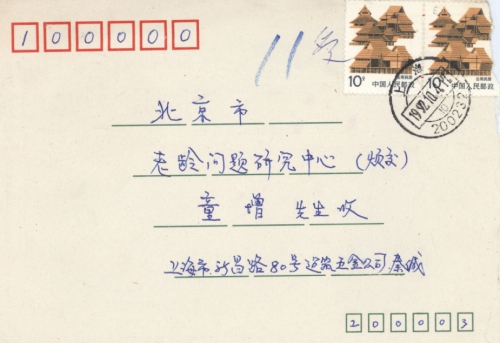 100000
11受
10分 云南民居
中国人民邮政
10分 云南民居
中国人民邮政
上海
1992.10.4
200232
北京市
老龄问题研究中心(烦交)
童增 先生收
上海市新昌路80号 五金公司 秦
200003